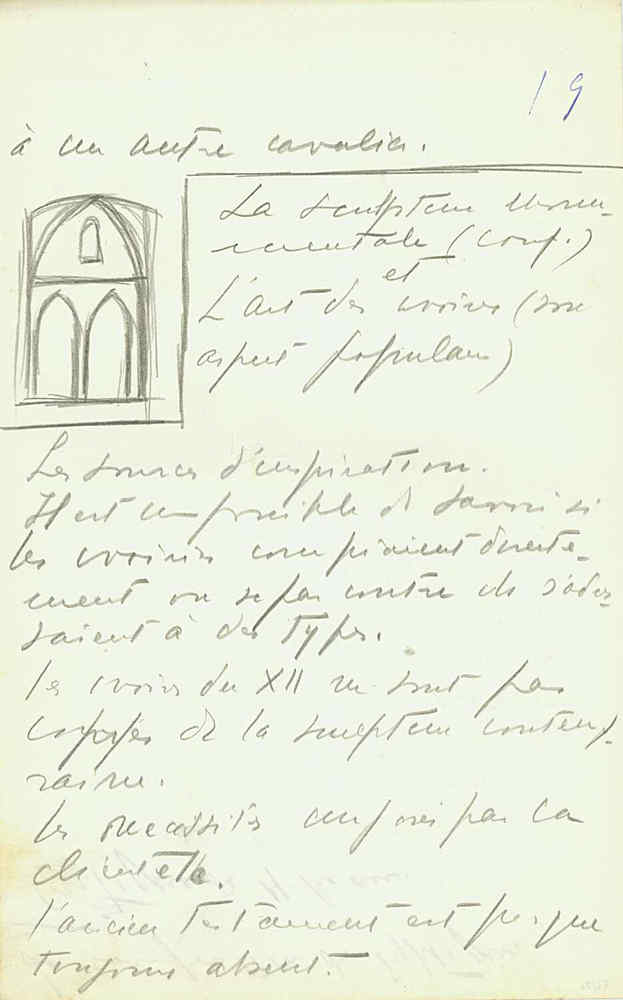 19
à un autre cavalier.
La sculpture monu-
mentale (comp.)
et
L'art des ivoires (son
aspect populaire)
Les sources d'inspiration.
Il est impossible de savoir si
les ivoiriers compiaient directe-
ment ou si par contre ils s'adres-
saient à des types.
les ivoires du XII ne sont pas
copiés de la sculpture contemp-
raine.
les necessités imposées par la
clientèle.
l'ancien Testament est presque
toujours absent.